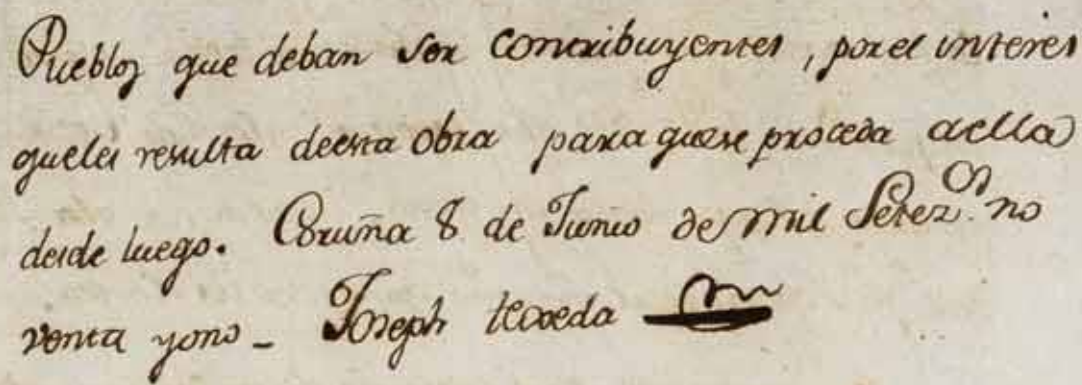 Pueblos que deban ser contribuyentes, porel interes
queles resulta deesta obra para quese proceda aella
desde luego. Coruña 8 de Junio de mil Setez.os no
venta yono - Joseph